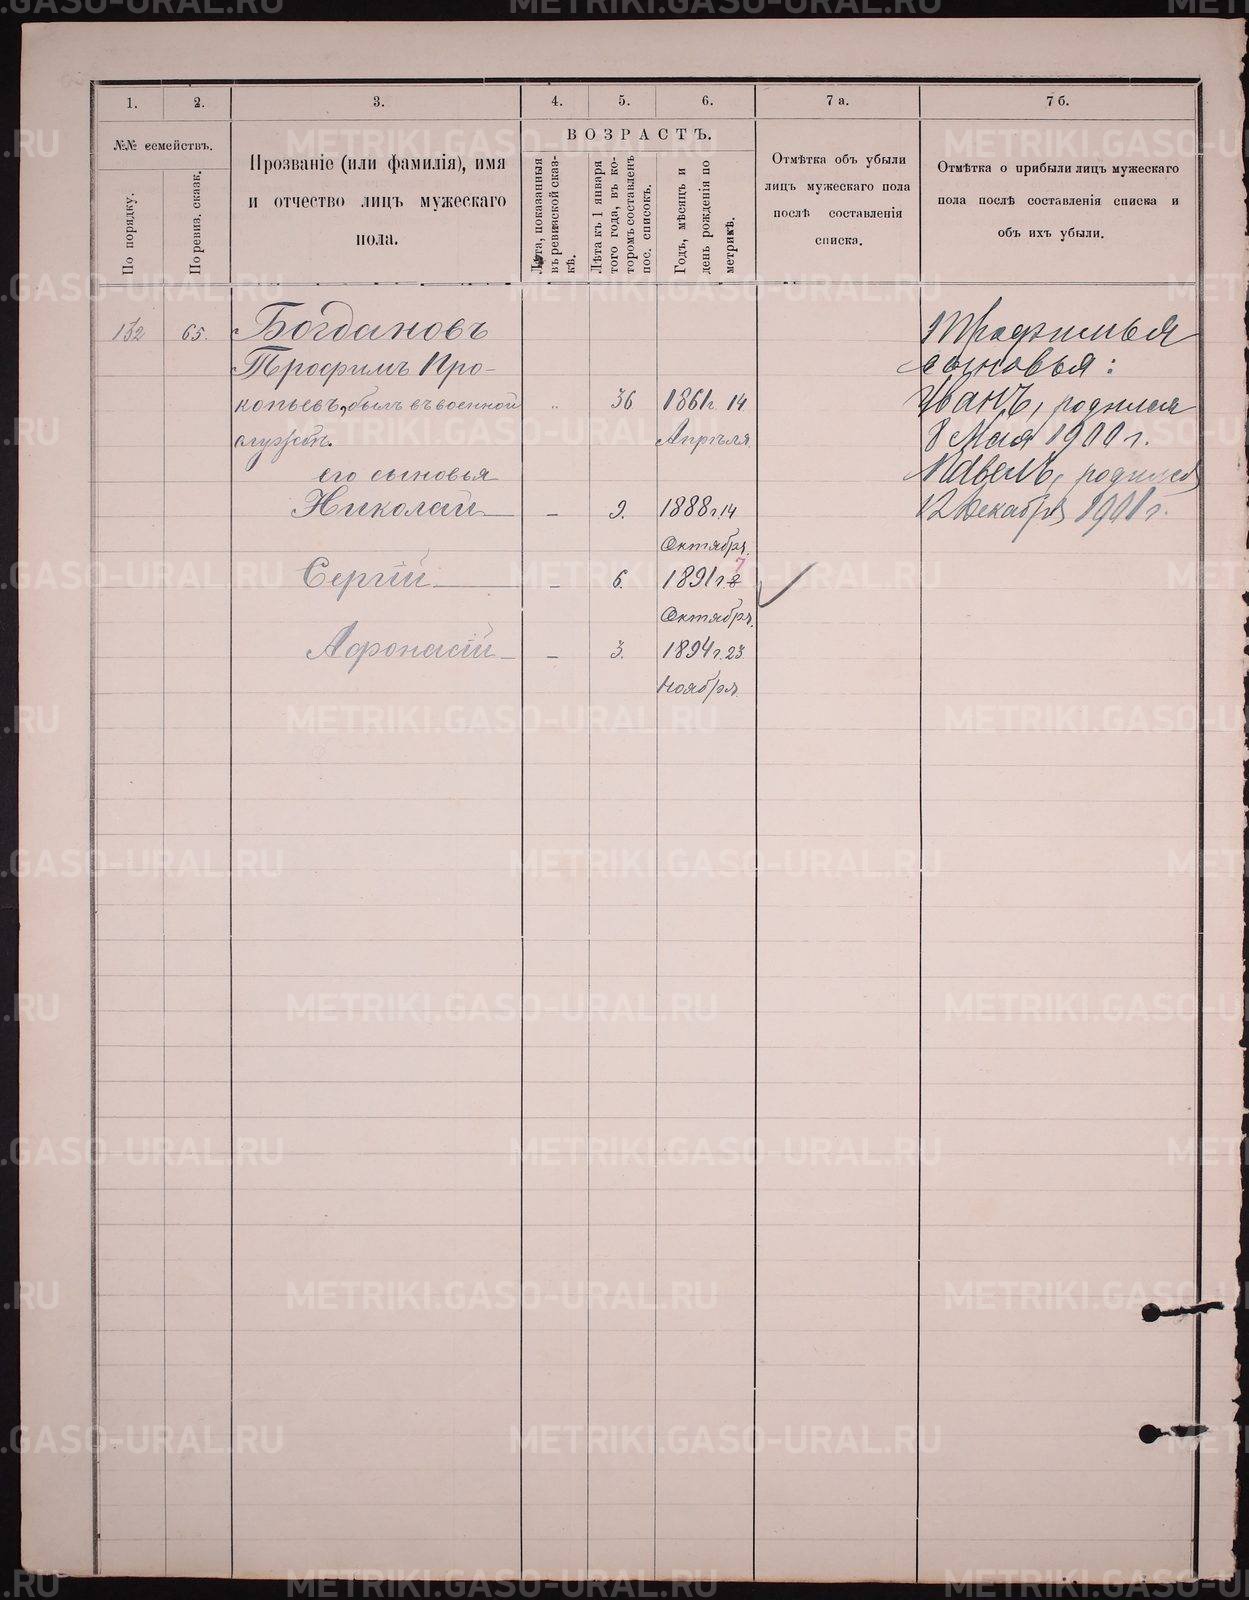 1.
2.
3.
4.
5.
6.
7 а.
7 б.
№№ семействъ.
По порядку.
По ревиз. сказк.
Прозваніе (или фамилія), имя
и отчество лицъ мужескаго
пола.
ВОЗРАСТЪ.
Лѣта, показанныя
въ ревизской сказ-
кѣ.
Лѣта къ 1 января
того года, въ ко-
торомъ составленъ
пос. списокъ.
Годъ, мѣсяцъ и
день рожденія по
метрикѣ.
Отмѣтка объ убыли
лицъ мужескаго пола
послѣ составленія
списка.
Отмѣтка о прибыли лицъ мужескаго
пола послѣ составленія списка и
объ ихъ убыли.
132 65. Богдановъ
Трофимъ Про-
копьевъ, былъ въ военной „ 36 1861 г. 14
службѣ. Апрѣля
его сыновья
Николай — 9. 1888 г. 14
Октября.
Сергій — 6. 1891 г. 8 7
Октября.
Афонасій — 3. 1894 г. 23
Ноября
сыновья:
Иванъ, родился
8 Мая 1900 г.
Павелъ, родился
12 Декабря 1901 г.
METRIKI.GASO-URAL.RU